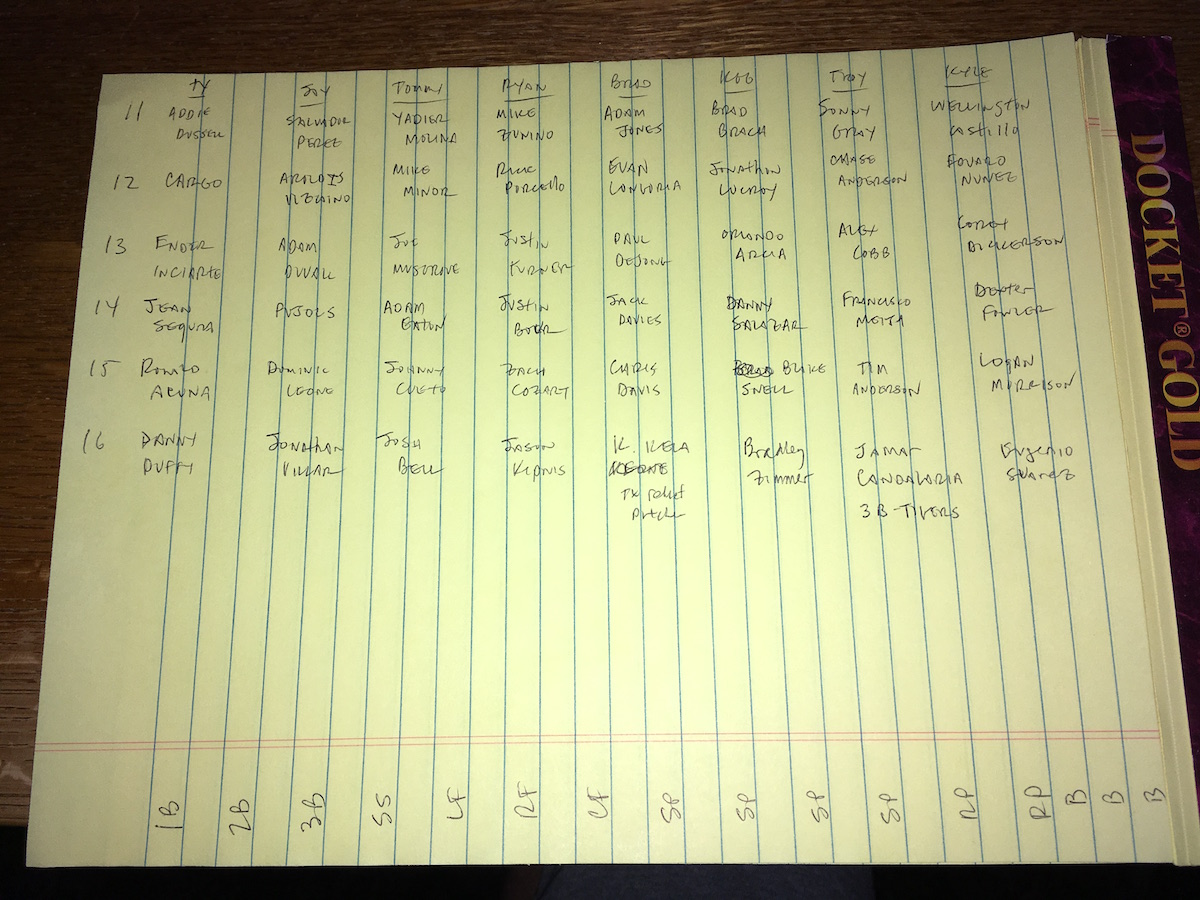 TY JAY TOMMY RYAN BRAD ROB TROY KYLE
11 ADDIE SALVADOR YADIER MIKE ADAM BRAD SONNY WELLINGTON
RUSSELL PEREZ MOLINA ZUNINO JONES BRACH GRAY CASTILLO
12 CARGO ARODYS MIKE RICK EVAN JONATHAN CHASE EDUARO
VIZCAINO MINOR PORCELLO LONGORIA LUCROY ANDERSON NUNEZ
13 ENDER ADAM JOE JUSTIN PAUL ORLANDO ALEX COREY
INCIARTE DUVALL MUSGROVE TURNER DEJONG ARCIA COBB DICKERSON
14 JEAN PUJOLS ADAM JUSTIN JACK DANNY FRANCISCO Dexter
SEGURA EATON BOUR DAVIES SALAZAR MEJIA FOWLER
15 DOMINIC JOHNNY ZACH CHRIS BLAKE TIM LOGAN
ACUNA LEONE CUETO COZART DAVIS SNELL ANDERSON MORRISON
16 DANNY JONATHAN JOSH JASON K. KELA Bradley Eugenio
DUFFY VILLAR BELL KIPNIS KEONE Zimmer CANDALARIA SUAREZ
TX relief 3B-TIGERS
Pitcher
1B 2B 3B SS LF RF CF SP SP SP SP RP RP B B B
DOCKET® GOLD